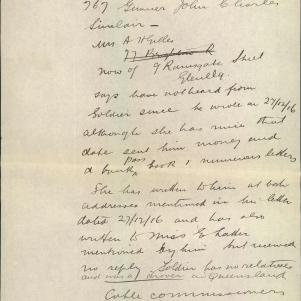 767 Gunner John Charles
Sinclair —
Mrs A H Gilles
77 Brighton R
now of 9 Ramsgate Street
Glenelg.
says have not heard from
Soldier since he wrote on 27/12/16
although she has since that
date sent him money and
a bank Pass book & numerous letters
She has written to him at both
addresses mentioned in his letter
dated 27/12/16 and has also
written to Miss E
mentioned by him but received
no reply. Soldier has no relatives
and was a drover in Queensland
Cable commissioners